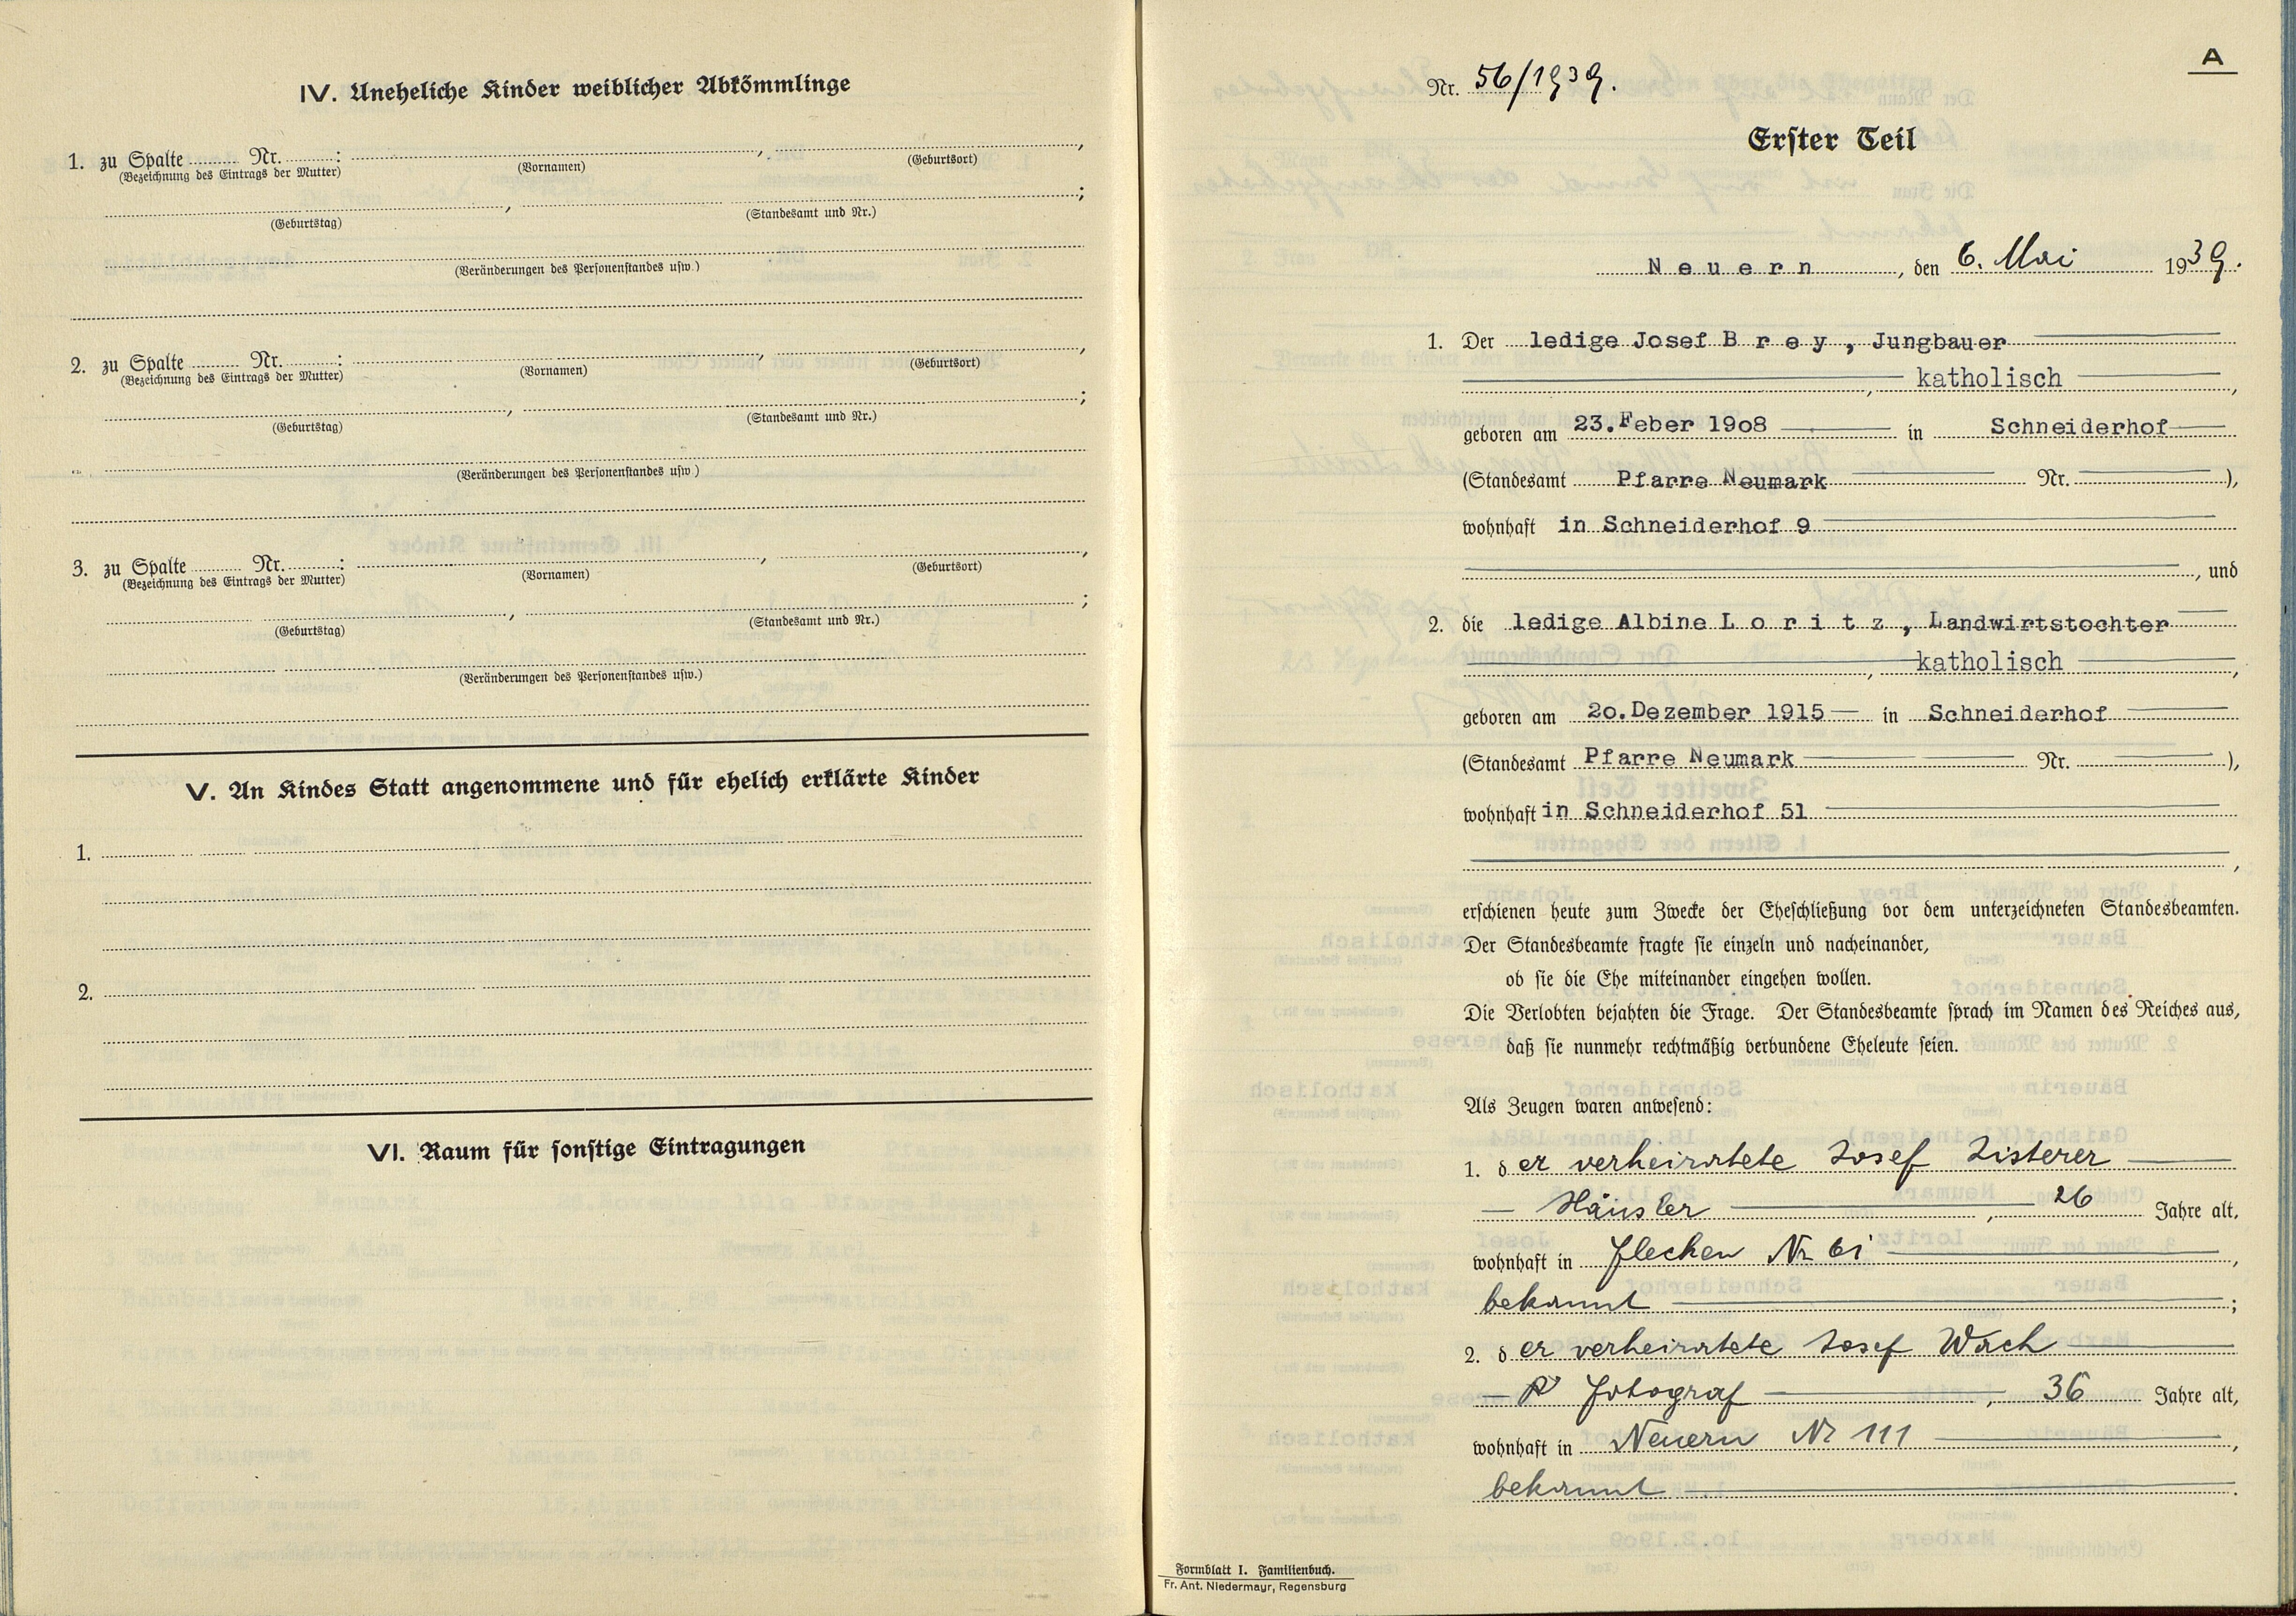 IV. Uneheliche Kinder weiblicher Abkömmlinge
1. zu Spalte ........ Nr. ........: ........, ........,
(Bezeichnung des Eintrags der Mutter) (Vornamen) (Geburtsort)
........, ........;
(Geburtstag) (Standesamt und Nr.)
(Veränderungen des Personenstandes usw.)
2. zu Spalte ........ Nr. ........: ........, ........,
(Bezeichnung des Eintrags der Mutter) (Vornamen) (Geburtsort)
........, ........;
(Geburtstag) (Standesamt und Nr.)
(Veränderungen des Personenstandes usw.)
3. zu Spalte ........ Nr. ........: ........, ........,
(Bezeichnung des Eintrags der Mutter) (Vornamen) (Geburtsort)
........, ........;
(Geburtstag) (Standesamt und Nr.)
(Veränderungen des Personenstandes usw.)
V. An Kindes Statt angenommene und für ehelich erklärte Kinder
1.
2.
VI. Raum für sonstige Eintragungen
A
Nr. 56/1939.
Erster Teil
Neuern, den 6. Mai 1939.
1. Der ledige Josef Brey, Jungbauer
, katholisch,
geboren am 23.Feber 1908 in Schneiderhof
(Standesamt Pfarre Neumark Nr. ),
wohnhaft in Schneiderhof 9
, und
2. die ledige Albine Loritz, Landwirtstochter
, katholisch,
geboren am 20.Dezember 1915 in Schneiderhof
(Standesamt Pfarre Neumark Nr. ),
wohnhaft in Schneiderhof 51
,
erschienen heute zum Zwecke der Eheschließung vor dem unterzeichneten Standesbeamten.
Der Standesbeamte fragte sie einzeln und nacheinander,
ob sie die Ehe miteinander eingehen wollen.
Die Verlobten bejahten die Frage. Der Standesbeamte sprach im Namen des Reiches aus,
daß sie nunmehr rechtmäßig verbundene Eheleute seien.
Als Zeugen waren anwesend:
1. der verheiratete Josef Zisterer
Häusler, 26 Jahre alt,
wohnhaft in Flecken Nr 61,
bekannt;
2. der verheiratete Josef Wach
Fotograf, 36 Jahre alt,
wohnhaft in Neuern Nr 111,
bekannt.
Formblatt I. Familienbuch.
Fr. Ant. Niedermayr, Regensburg